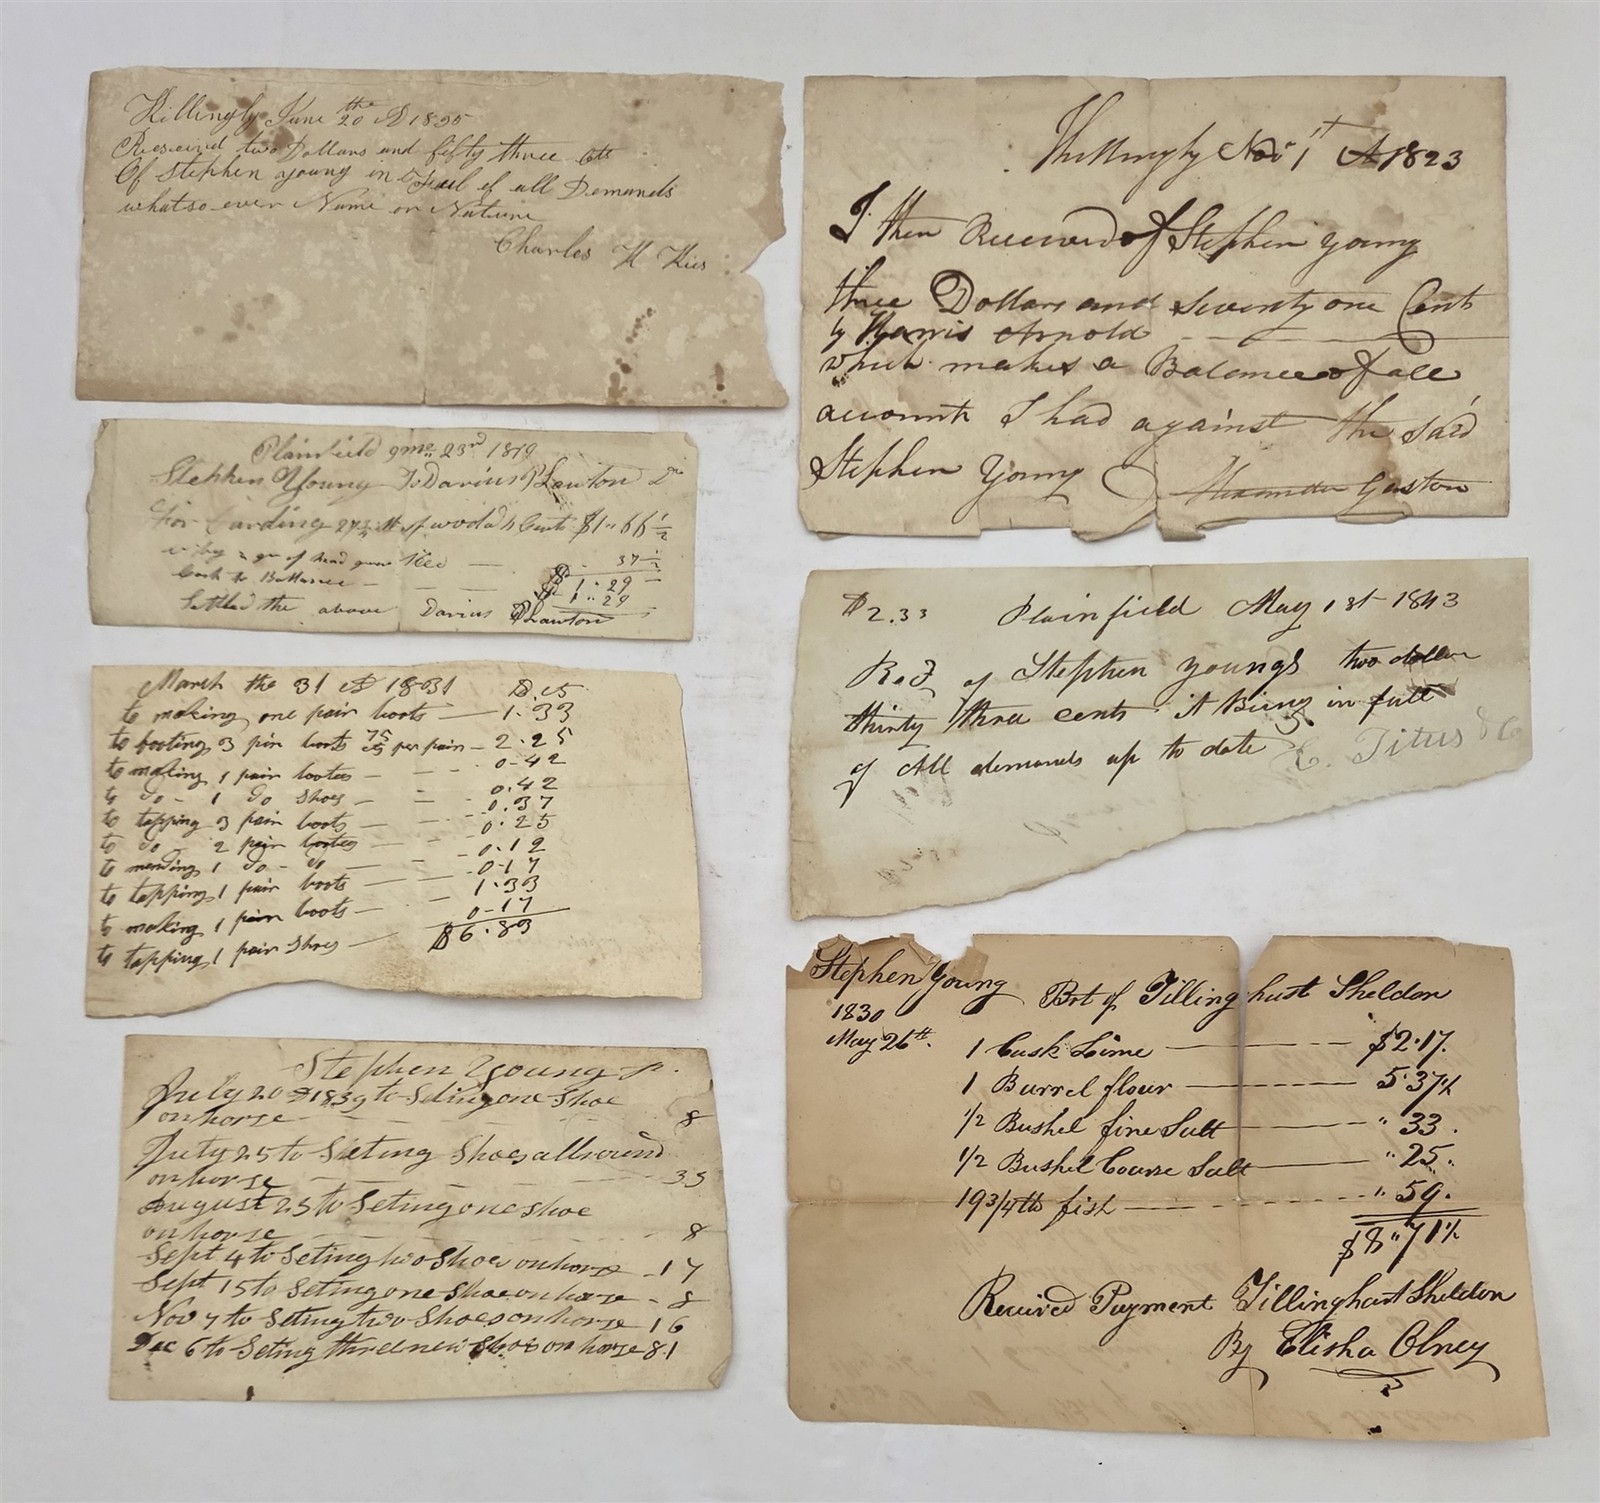 Killingly June 20 the AD 1835
Received two Dollars and fifty three Cts
Of Stephen young in Full of all Demands
what so ever Name or Nature
Charles H Kies
Plainfield 9mo 23rd 1819
Stephen Young To Darius P Lawton Dr
For Carding lb of wool a Cents $1"66 1/2
37 1/2
Cash to Ballance $1"29
$1"29
Settled the above Darius P Lawton
March the 31 AD 1831 D. cts
to making one pair boots 1.33
to footing 3 pair boots 75 cts per pair 2.25
to making 1 pair bootees 0.42
to do 1 do shoes 0.42
to tapping 3 pair boots 0.37
to do 2 pair bootees 0.25
to mending 1 do do 0.12
to tapping 1 pair boots 0.17
to making 1 pair boots 1.33
to tapping 1 pair shoes 0.17
$6.83
Stephen Young Jr.
July 20 1839 to Seting one Shoe
on horse 8
July 25 to Seting Shoes all round
on horse 33
August 25 to Seting one shoe
on horse 8
Sept 4 to Seting two Shoes on horse 17
Sept 15 to Seting one Shoe on horse 8
Nov 7 to Seting two Shoes on horse 16
Dec 6 to Seting three new Shoes on horse 81
Killingly Nov 1st AD 1823
I then Received of Stephen young
three Dollars and seventy one Cents
by Harris Arnold
which makes a Balance of all
accounts I had against the said
Stephen Young Alexander Gaston
$2.33 Plainfield May 1st 1843
Recd of Stephen youngs two dollar
thirty three cents it Being in full
of All demands up to date C. Titus & Co
Stephen Young Bot of Tillinghast Sheldon
1830
May 26th. 1 Cask Lime $2.17.
1 Barrel flour 5.37 1/2
1/2 Bushel fine Salt " 33.
1/2 Bushel Coarse Salt " 25.
19 3/4 lb fish " 59.
$8"71 1/2
Received Payment Tillinghast Sheldon
By Elisha Olney